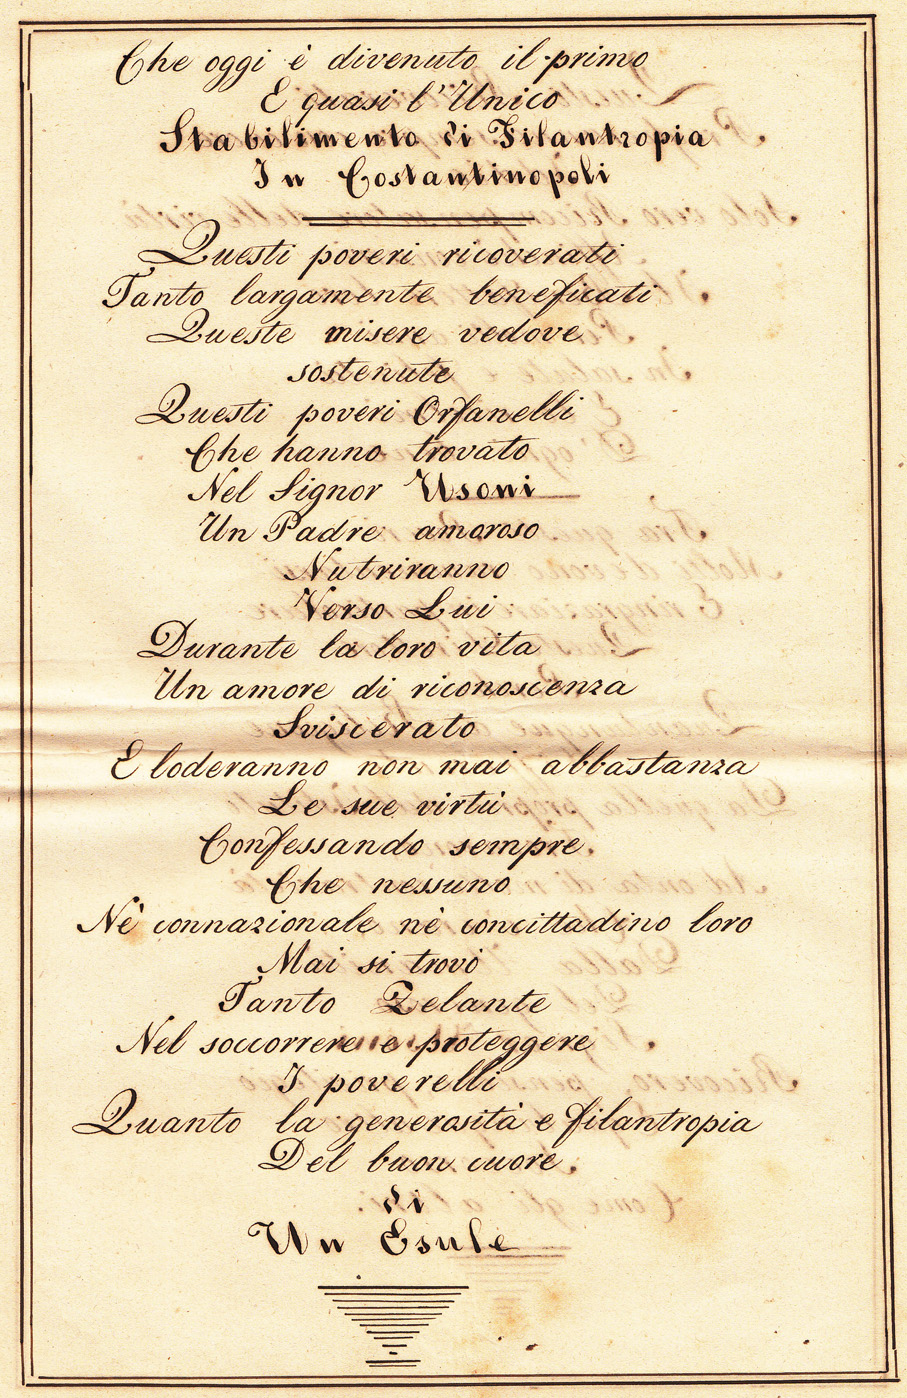 Che oggi è divenuto il primo
E quasi l'Unico
Stabilimento di Filantropia
In Costantinopoli
Questi poveri ricoverati
Tanto largamente beneficati
Queste misere vedove
sostenute
Questi poveri Orfanelli
Che hanno trovato
Nel Signor Usoni
Un Padre amoroso
Nutriranno
Verso Lui
Durante la loro vita
Un amore di riconoscenza
Sviscerato
E loderanno non mai abbastanza
Le sue virtù
Confessando sempre.
Che nessuno
Nè connazionale nè concittadino loro
Mai si trovò
Tanto Zelante
Nel soccorrere e proteggere
I poverelli
Quanto la generosità e filantropia
Del buon cuore.
di
Un Esule